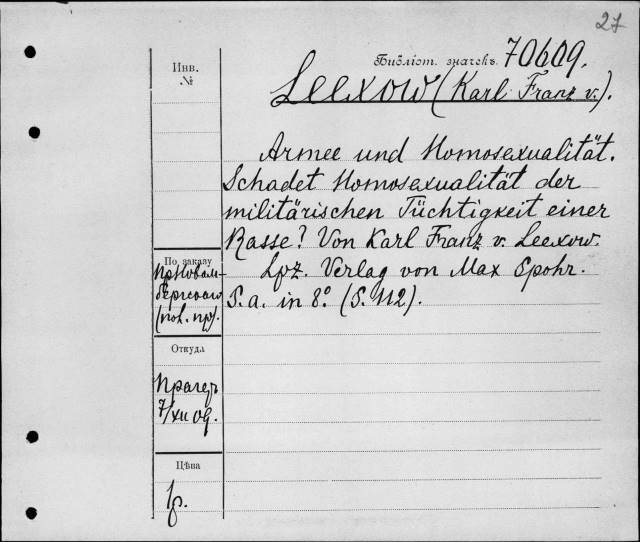 27
Библіот. значекъ 70609.
Инв.
№
Leexow (Karl Franz v.).
Armee und Homosexualität.
Schadet Homosexualität der
militärischen Tüchtigkeit einer
Rasse? Von Karl Franz v. Leexow.
Lpz. Verlag von Max Spohr.
S. a. in 8° (S. 112).
По заказу
Откуда
7/XII 09.
Цѣна
1р.